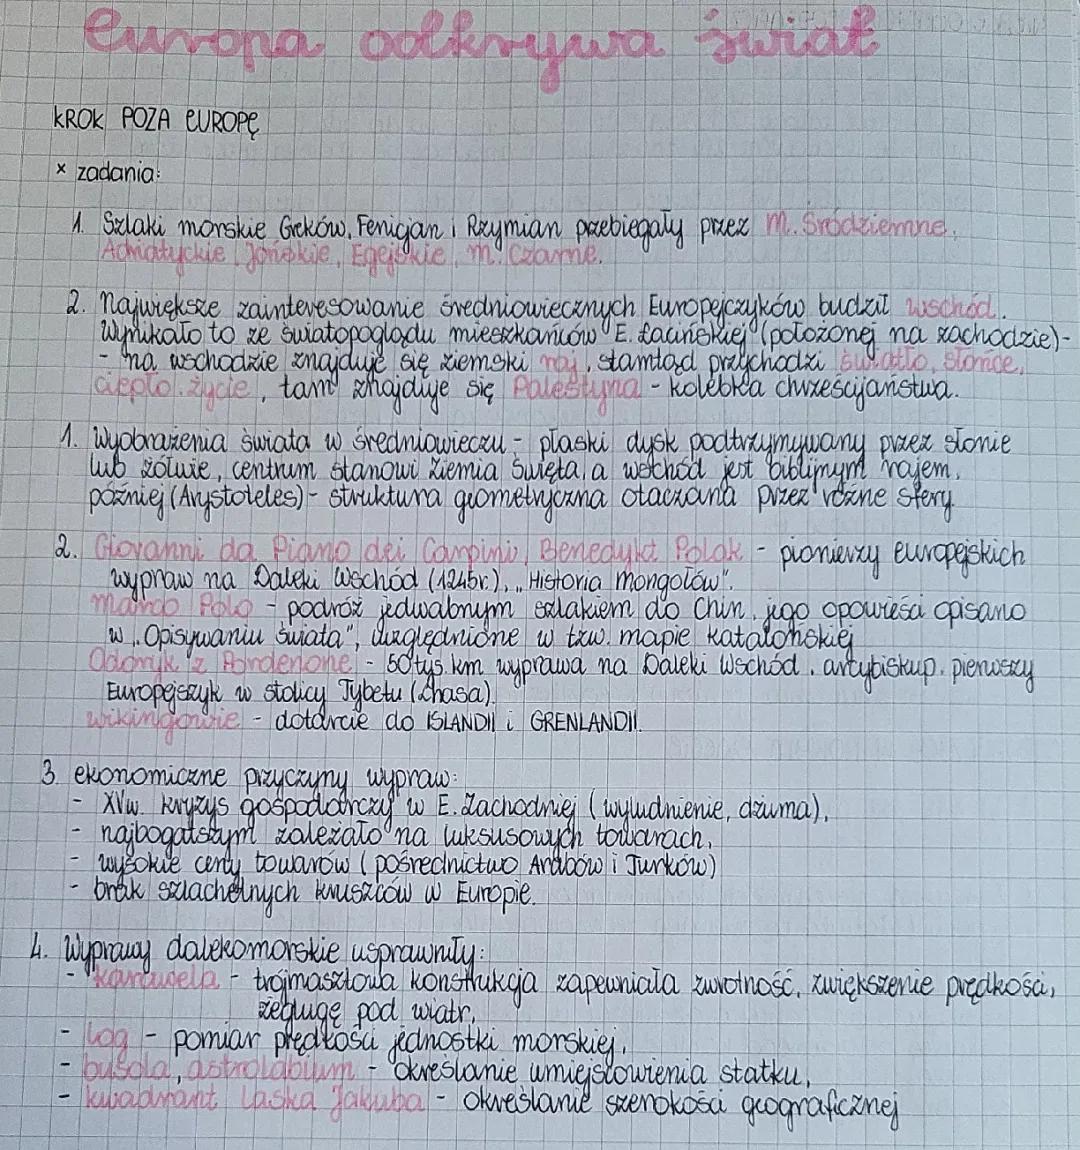 Europa odkrywa świat
KROK POZA EUROPĘ
x zadania:
1. Szlaki morskie Greków, Fenicjan i Rzymian przebiegały przez M. Śródziemne,
Adriatyckie, Jońskie, Egejskie, M. Czarne.
2. Największe zainteresowanie średniowiecznych Europejczyków budził wschód.
Wynikało to ze światopoglądu mieszkańców E. Łacińskiej (położonej na zachodzie)-
- na wschodzie znajduje się ziemski raj, stamtąd przychodzi światło, słońce,
ciepło, życie, tam znajduje się Palestyna - kolebka chrześcijaństwa.
1. Wyobrażenia świata w średniowieczu - płaski dysk podtrzymywany przez słonie
lub żółwie, centrum stanowi Ziemia Święta, a wschód jest biblijnym rajem,
później (Arystoteles) - struktura geometryczna otaczana przez różne sfery.
2. Giovanni da Piano dei Carpini, Benedykt Polak - pionierzy europejskich
wypraw na Daleki Wschód (1245r.), „Historia Mongołów".
Marco Polo - podróż jedwabnym szlakiem do Chin, jego opowieści opisano
w „Opisywaniu świata", uwzględnione w tzw. mapie katalońskiej
Odoryk z Pordenone - 50 tys. km wyprawa na Daleki Wschód, arcybiskup, pierwszy
Europejczyk w stolicy Tybetu (Lhasa).
wikingowie - dotarcie do ISLANDII i GRENLANDII.
3. ekonomiczne przyczyny wypraw:
- XVw. kryzys gospodarczy w E. Zachodniej (wyludnienie, dżuma),
- najbogatszym zależało na luksusowych towarach,
- wysokie ceny towarów (pośrednictwo Arabów i Turków)
- brak szlachetnych kruszców w Europie.
4. Wyprawy dalekomorskie usprawniły:
- karawela - trójmasztowa konstrukcja zapewniała zwrotność, zwiększenie prędkości,
żeglugę pod wiatr,
- log - pomiar prędkości jednostki morskiej,
- busola, astrolabium - określanie umiejscowienia statku,
- kwadrant Laska Jakuba - określanie szerokości geograficznej